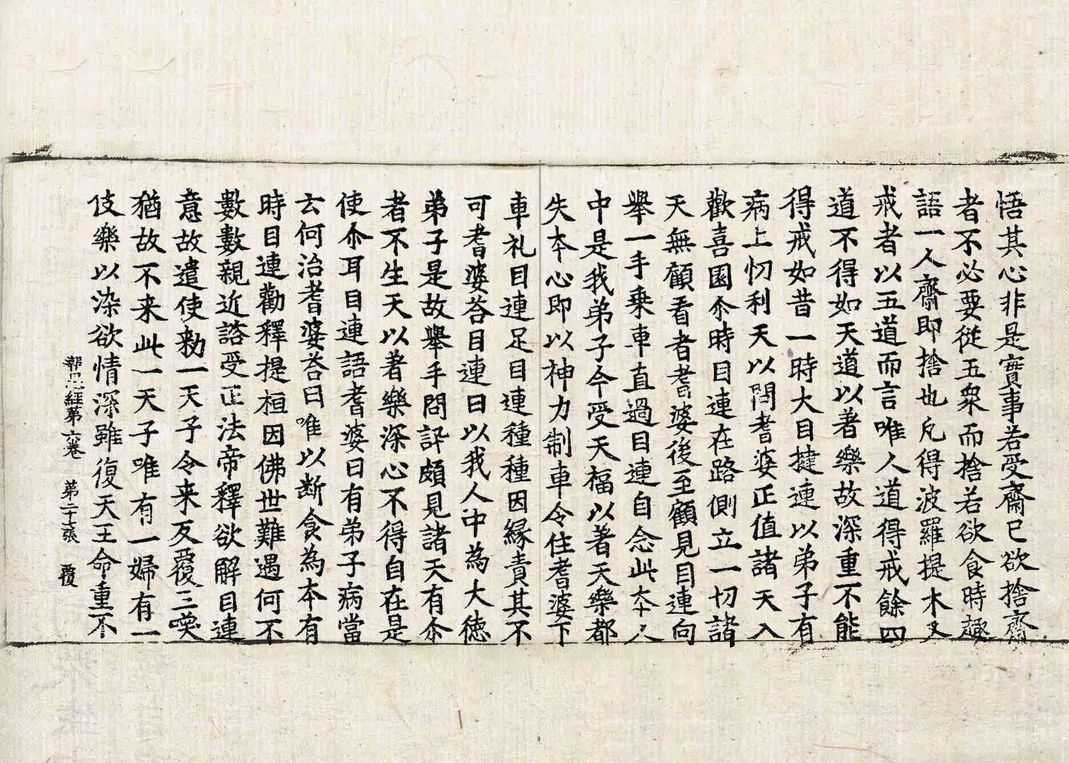 悟其心非是實事若受齋已欲捨齋
者不必要從五衆而捨若欲食時趣
語一人齋即捨也凡得波羅提木叉
戒者以五道而言唯人道得戒餘四
道不得如天道以著樂故深重不能
得戒如昔一時大目揵連以弟子有
病上忉利天以問耆婆正值諸天入
歡喜園尒時目連在路側立一切諸
天無顧看者耆婆後至顧見目連向
舉一手乘車直過目連自念此本人
中是我弟子今受天福以著天樂都
失本心即以神力制車令住耆婆下
車礼目連足目連種種因緣責其不
可耆婆荅目連曰以我人中為大徳
弟子是故舉手問訊頗見諸天有尒
者不生天以著樂深心不得自在是
使尒耳目連語耆婆曰有弟子病當
云何治耆婆荅曰唯以斷食為本有
時目連勸釋提桓因佛世難遇何不
數數親近諮受正法帝釋欲解目連
意故遣使勑一天子令来反覆三喚
猶故不来此一天子唯有一婦有一
伎樂以染欲情深雖復天王命重不
報恩經第六卷 第二十張 覆